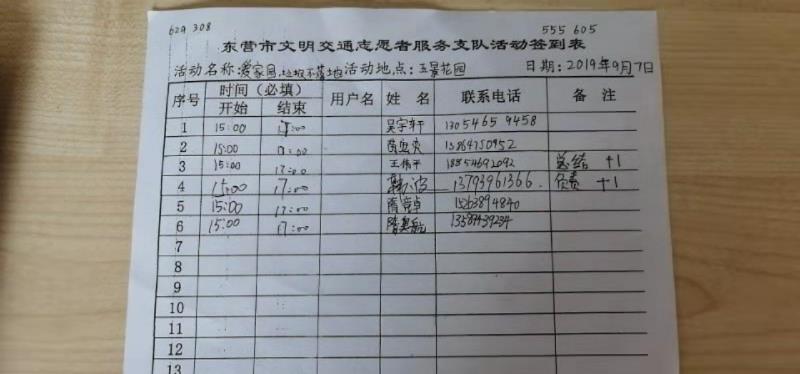 629 308
555 605
东营市文明交通志愿者服务支队活动签到表
活动名称:爱家园,垃圾不落地 活动地点:玉景花园 日期:2019年9月7日
序号 时间（必填） 用户名 姓 名 联系电话 备 注
开始 结束
1 15:00 17:00 吴宇轩 13054659458
2 15:00 17:00
3 15:00 17:00 王伟平 18854692092 总结 +1
4 15:00 17:00 13793961366. 负责 +1
5 15:00 17:00 15263894840
6 15:00 17:00
7
8
9
10
11
12
13